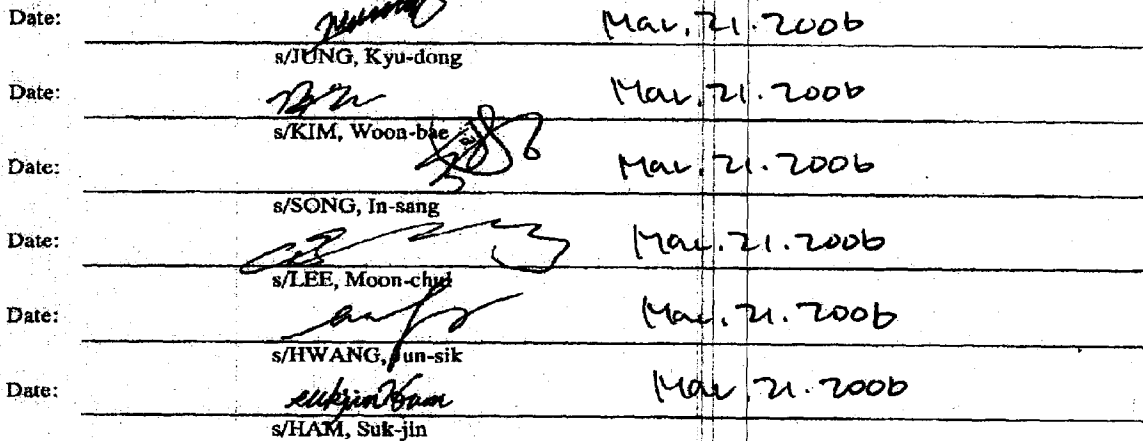 Date: Mar. 21. 2006
s/JUNG, Kyu-dong
Date: Mar. 21. 2006
s/KIM, Woon-bae
Date: Mar. 21. 2006
s/SONG, In-sang
Date: Mar. 21. 2006
s/LEE, Moon-chul
Date: Mar. 21. 2006
s/HWANG, Jun-sik
Date: sukjin Ham Mar. 21. 2006
s/HAM, Suk-jin